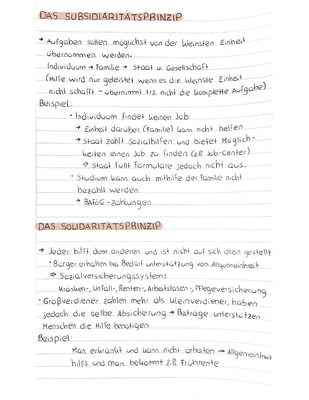 DAS SUBSIDIARITÄTSPRINZIP
→ Aufgaben sollen möglichst von der kleinsten Einheit
übernommen werden.
Individuum → Familie → Staat u. Gesellschaft
(Hilfe wird nur geleistet wenn es die kleinste Einheit
nicht schafft - übernimmt trz. nicht die komplette Aufgabe)
Beispiel:
• Individuum findet keinen Job
→ Einheit darüber (Familie) kann nicht helfen
→ Staat zahlt Sozialhilfen und bietet Möglich-
keiten einen Job zu finden (z.B. Job-Center)
⇒ Staat füllt Formulare jedoch nicht aus.
• Studium kann auch mithilfe der Familie nicht
bezahlt werden
→ BAföG-zahlungen
DAS SOLIDARITÄTSPRINZIP
→ Jeder hilft dem anderen und ist nicht auf sich allein gestellt
• Bürger erhalten bei Bedarf unterstützung von Allgemeinheit
⇒ Sozialversicherungssystem:
Kranken-, Unfall-, Renten-, Arbeitslosen-, Pflegeversicherung
• Großverdiener zahlen mehr als kleinverdiener, haben
jedoch die selbe Absicherung → Beiträge unterstützen
Menschen die Hilfe benötigen
Beispiel:
Man erkrankt und kann nicht arbeiten → Allgemeinheit
hilft und man bekommt z.B. Frührente